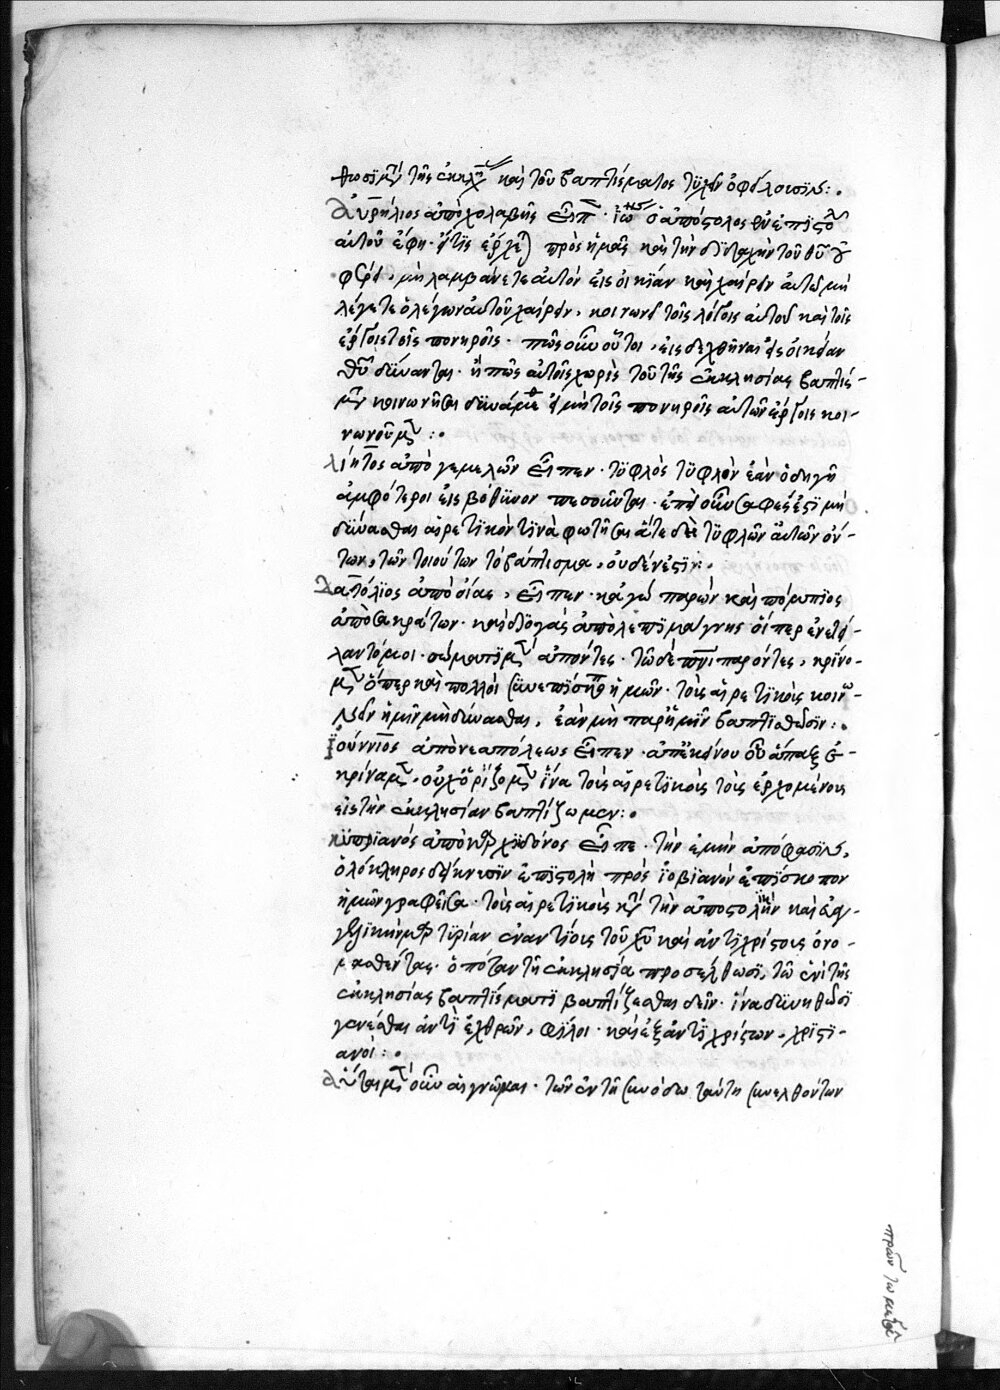 θωσϊ μετὰ τῆς ἐκκλησίας καὶ τοῦ βαπτίσματος τυχεῖν ὀφείλουσϊν :
Αὐρήλιος ἀπὸ χολαβῆς εἶπεν · ἰωάννης ὁ ἀπόστολος ἐν ἐπιστολῇ
αὐτοῦ ἔφη · εἴ τις ἔρχεται πρὸς ἡμᾶς καὶ τὴν διδαχὴν τοῦ θυ οὐ
φέρει, μὴ λαμβάνετε αὐτὸν εἰς οἰκίαν καὶ χαίρειν αὐτῶ μὴ
λέγετε ὁ λέγων αὐτοῦ χαίρειν, κοινωνεῖ τοῖς λόγοις αὐτοῦ καὶ τοῖς
ἔργοις τοῖς πονηροῖς · πῶς οὖν οὗτοι, εἰσδεχθῆναι εἰς οἰκίαν
θυ δύνανται · ἢ πῶς αὐτοῖς χωρὶς τοῦ τῆς ἐκκλησίας βαπτίσ-
ματος κοινωνῆσαι δυνάμεθα εἰ μὴ τοῖς πονηροῖς αὐτῶν ἔργοις κοι-
νωνοῦμεν :
λίητος ἀπὸ γεμελῶν εἶπεν · τυφλὸς τυφλὸν ἐὰν ὁδηγῆ
ἀμφότεροι εἰς βόθυνον πεσοῦνται · ἐπεὶ οὖν σαφές ἐστι μὴ
δύνασθαι αἱρετικὸν τινὰ φωτίσαι ἅτε δὲ τυφλῶν αὐτῶν ὄν-
των, τῶν τοιούτων τὸ βάπτισμα, οὐδέν ἐστιν :
Δατόλιος ἀπὸ οἴας, εἶπεν · κἀγὼ παρὼν καὶ πόμπιος
ἀπὸ σακράτων · καὶ διόγας ἀπὸ λεπιμάγνης οἵπερ ἐνετεί-
λαντό μοι · σώματι μὲν ἀπόντες · τῶ δὲ πνι παρόντες, κρίνο-
μεν ὅπερ καὶ πολλοὶ συνεπίσκοποι ἡμῶν · τοὺς αἱρετικοὺς κοινω-
νεῖν ἡμῖν μὴ δύνασθαι, ἐὰν μὴ παρ' ἡμῖν βαπτισθῶσϊν :
Ἰούννιος ἀπὸ νεαπόλεως εἶπεν · ἀπ' ἐκείνου οὗ ἅπαξ ἐ-
κρίναμεν, οὐχ ὁρίζομεν ἵνα τοὺς αἱρετικοὺς τοὺς ἐρχομένους
εἰς τὴν ἐκκλησίαν βαπτίζωμεν :
κυπριανός ἀπὸ καρχηδόνος εἶπε · τὴν ἐμὴν ἀπόφασϊν,
ὁλόκληρος δείκνυσϊν ἐπιστολὴ πρὸς ἰοβϊανὸν ἐπίσκοπον
ἡμῶν γραφεῖσα · τοὺς αἱρετικοὺς κατὰ τὴν ἀποστολικὴν καὶ εὐαγ-
γελικὴν μαρτυρίαν ἐναντίους τοῦ χυ καὶ ἀντιχρίστους ὀνο-
μασθέντας · ὁπόταν τῆ ἐκκλησία προσέλθωσϊ, τῶ ἑνὶ τῆς
ἐκκλησίας βαπτίσματϊ βαπτίζεσθαι δεῖν · ἵνα δυνηθῶσϊ
γενέσθαι ἀντὶ ἐχθρῶν, φίλοι · καὶ ἐξ ἀντιχρίστων, χριστι-
ανοί :
Αὗται μὲν οὖν αἱ γνῶμαι · τῶν ἐν τῆ συνόδω ταύτη συνελθόντων